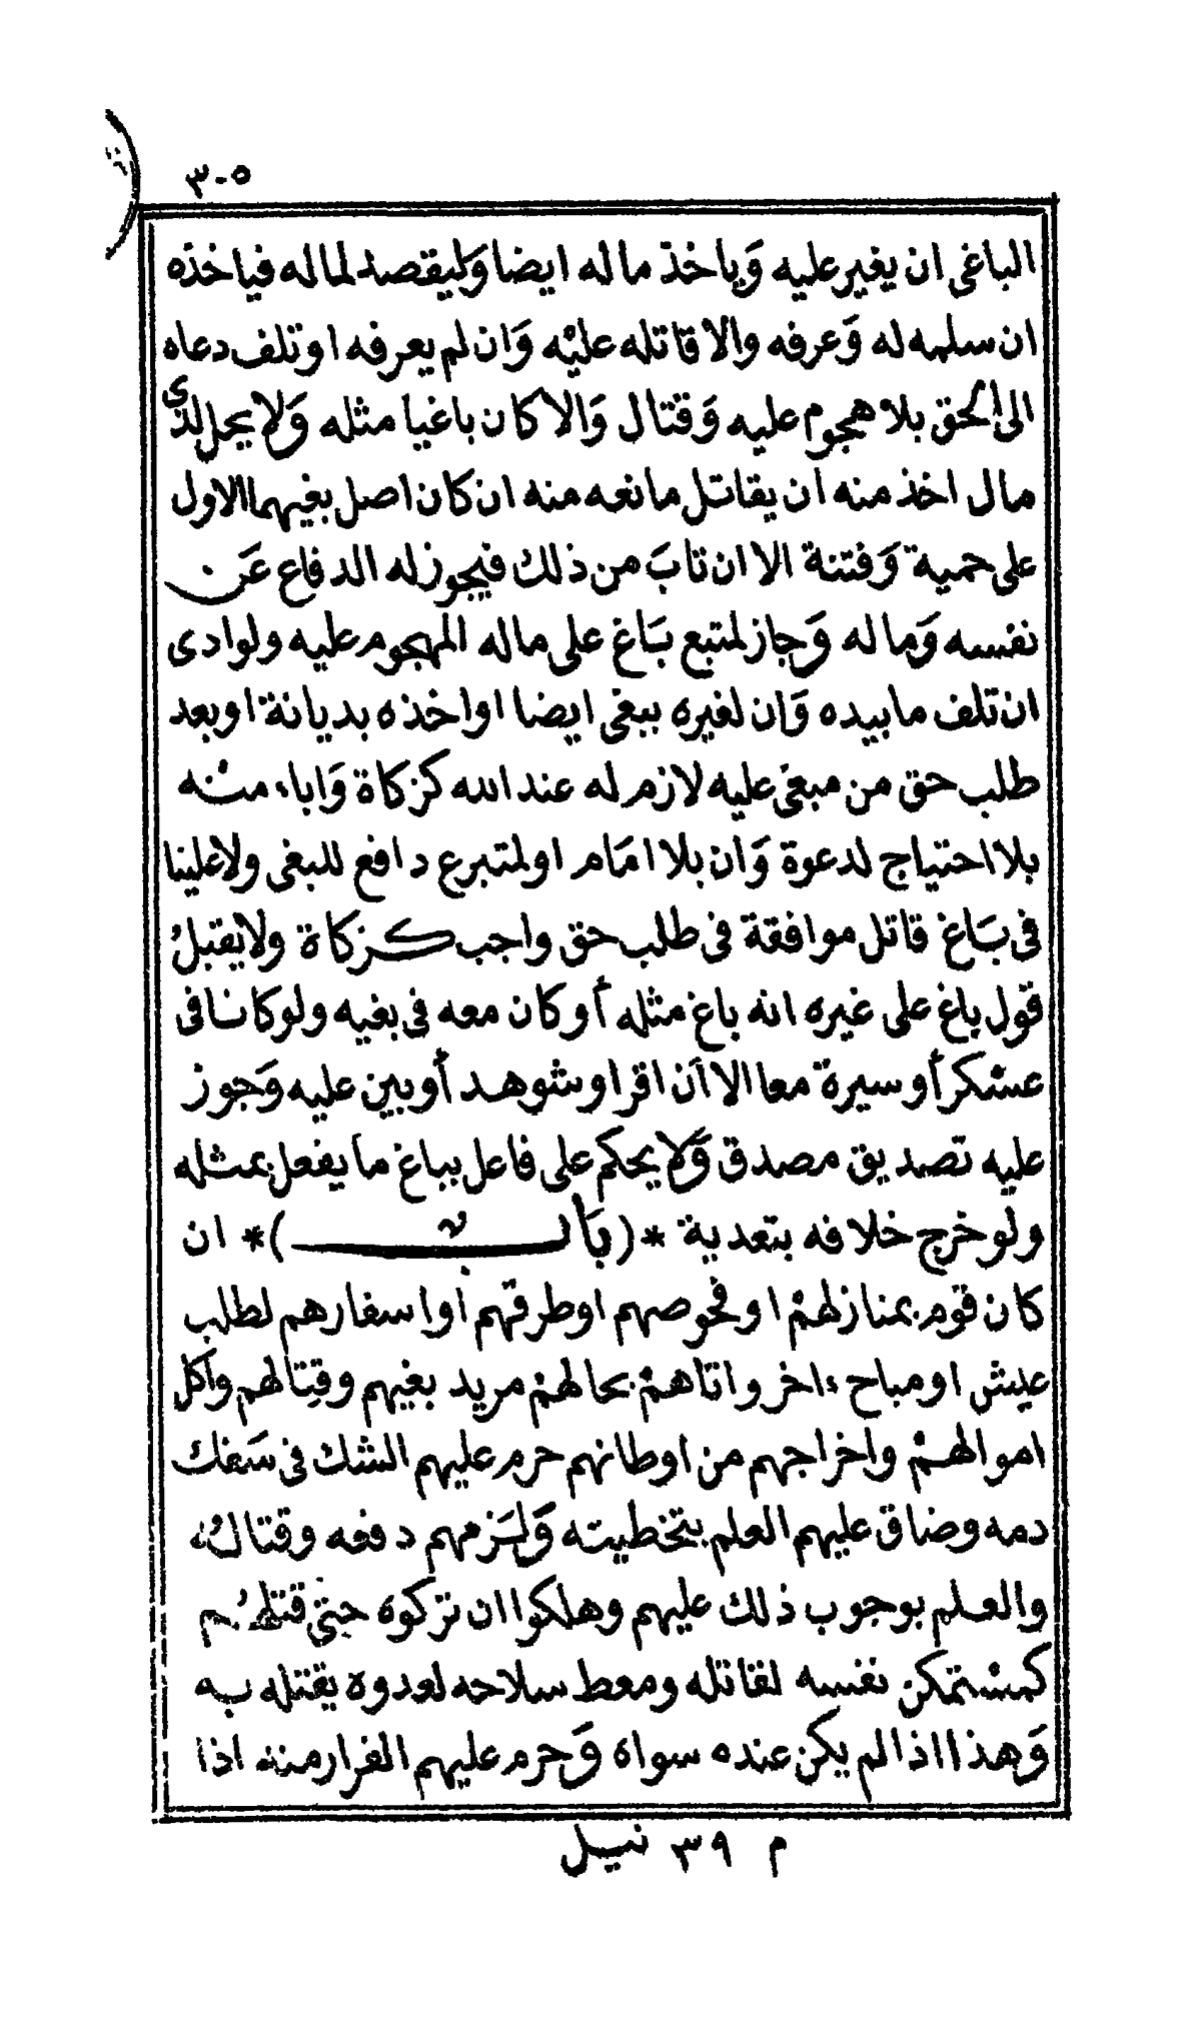 ٣٠٥
الباغى ان يغير عليه وَياخذ ماله ايضا وَليقصد لماله فياخذه
ان سلمه له وَعرفه والا قاتله عليْه وَان لم يعرفه اوتلف دعاه
الى الحق بلا هجوم عليه وَقتال وَالا كان باغيا مثله وَلا يحل لذى
مال اخذ منه ان يقاتل مانعه منه ان كان اصل بغيهما الاول
على حمية وَفتنة الا ان تابَ من ذلك فيجوز له الدفاع عَن
نفسه وَماله وَجاز لمتبع بَاغ على ماله المهجوم عليه ولو ادى
ان تلف مابيده وَان لغيره ببغى ايضا او اخذه بديانة او بعد
طلب حق من مبغى عليه لازم له عند الله كزكاة وَاباء منْه
بلا احتياج لدعوة وَان بلا امَام او لمتبرع دافع للبغى ولا علينا
فى بَاغ قاتل موافقة فى طلب حق واجب كزكاة ولا يقبلُ
قول باغ على غيره انه باغ مثله أو كان معه فى بغيه ولو كانا فى
عسْكر أو سيرة معا الا أن اقر او شوهد أو بين عليه وَجوز
عليه تصديق مصدق وَّلا يحكم على فاعل بباغ ما يفعل بمثله
ولو خرج خلافه بتعدية *(بَاب)* ان
كان قوم بمنازلهمْ او فحوصهم او طرقهم أو اسفارهم لطلب
عيش او مباح ءاخر واتاهمْ بحالهمْ مريد بغيهم وقِتالهم واكل
اموالهمْ واخراجهم من اوطانهم حرم عليهم الشك فى سَفك
دمه وضاق عليهم العلم بتخطيته وَّلزمهم دفعه وقتالُه
والعلم بوجوب ذلك عليهم وهلكوا ان تركوه حتى قتلهُم
كمسْتمكن نفسه لقاتله ومعط سلاحه لعدوه يقتله به
وَهذا اذا لم يكن عنده سواه وَّحرم عليهم الفرار منه اذا
م ٣٩ نيل